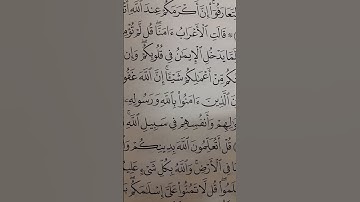 لِتَعَارَفُوٓا۟ إِنَّ أَكْرَمَكُمْ عِندَ ٱللَّهِ
قَالَتِ ٱلْأَعْرَابُ ءَامَنَّا قُل لَّمْ تُؤْمِ
لَمَّا يَدْخُلِ ٱلْإِيمَٰنُ فِى قُلُوبِكُمْ وَإِن
كُم مِّنْ أَعْمَٰلِكُمْ شَيْـًٔا إِنَّ ٱللَّهَ غَفُو
ٱلَّذِينَ ءَامَنُوا۟ بِٱللَّهِ وَرَسُولِهِۦ
وَٰلِهِمْ وَأَنفُسِهِمْ فِى سَبِيلِ ٱللَّهِ
قُلْ أَتُعَلِّمُونَ ٱللَّهَ بِدِينِكُمْ وَ
فِى ٱلْأَرْضِ وَٱللَّهُ بِكُلِّ شَىْءٍ عَلِيمٌ
لَمُوا۟ قُل لَّا تَمُنُّوا۟ عَلَىَّ إِسْلَٰمَكُم